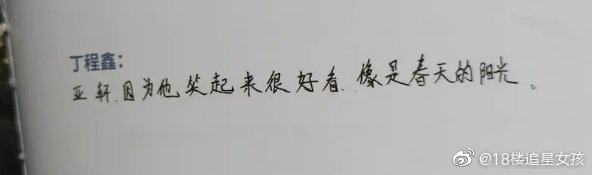 丁程鑫：
亚轩.因为他笑起来很好看.像是春天的阳光。
@18楼追星女孩